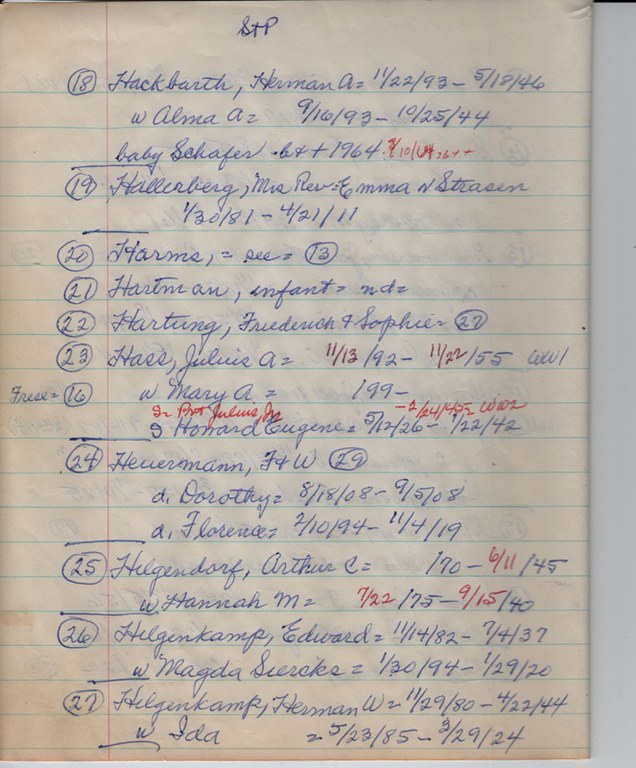 StP
(18) Hackbarth, Herman A = 11/22/93 - 5/18/46
w Alma A = 9/16/93 - 10/25/44
baby Schafer b++ 1964 7/10/64 b++
(19) Hallerberg, Mrs Rev = Emma N Strasen
1/30/81 - 4/21/11
(20) Harms, = see = (13)
(21) Hartman, infant = nd =
(22) Hartung, Friederich & Sophie = (27)
(23) Hass, Julius A = 11/13/92 - 11/22/55 WW1
Frese = (16) w Mary A. = 199-
S = Pvt Julius, Jr - 2/24/45 = WW2
S Howard Eugene = 5/12/26 - 1/22/42
(24) Heuermann, F + W (29)
d. Dorothy = 8/18/08 - 9/5/08
d. Florence = 2/10/94 - 11/4/19
(25) Hilgendorf, Arthur C = /70 - 6/11/45
w. Hannah M = 7/22/75 - 9/15/40
(26) Hilgenkamp, Edward = 11/14/82 - 7/4/37
w Magda Siercks = 1/30/94 - 1/29/20
(27) Hilgenkamp, Herman W = 11/29/80 - 4/22/44
w Ida = 5/23/85 - 3/29/24